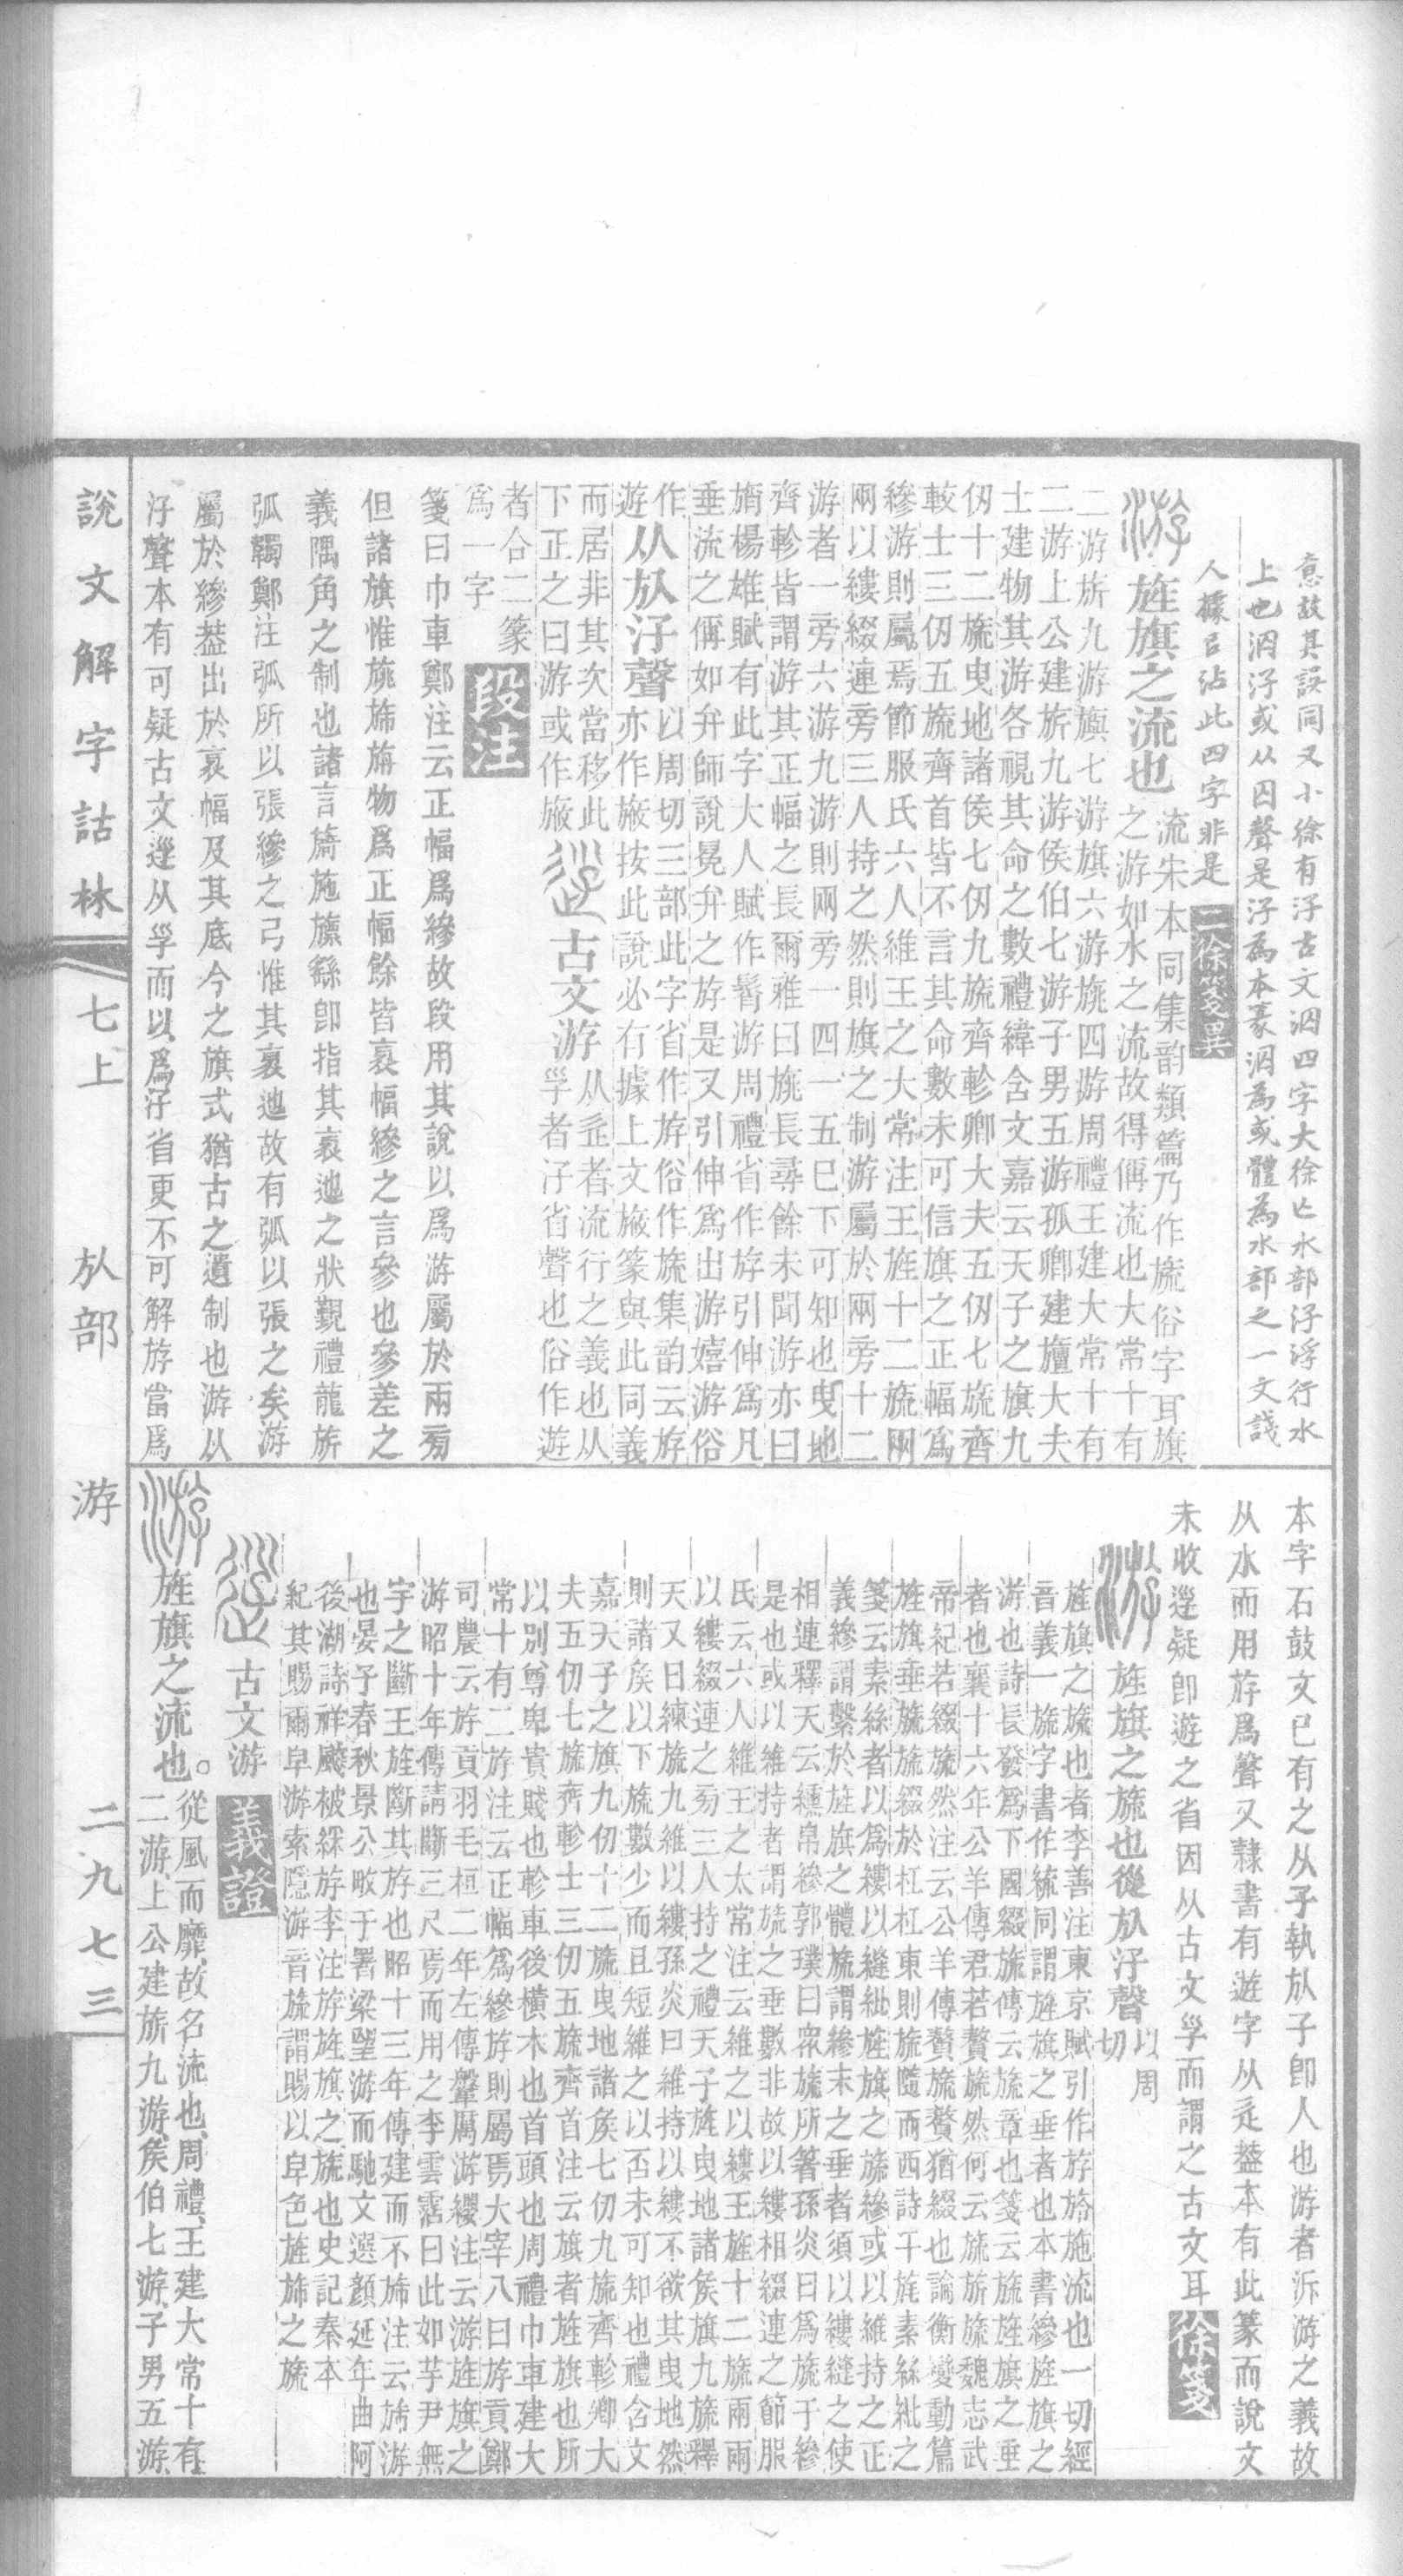 意故其誤同又小徐有汓古文泅四字大徐亡水部汓浮行水
上也泅汓或从囚聲是汓為本篆泅為或體為水部之一文諓
人據㠯沾此四字非是 二徐箋異
游 旌旗之流也
流宋本同集韵類篇乃作旒俗字耳旗
之游如水之流故得偁流也大常十有
二游旂九游旟七游旗六游旐四游周禮王建大常十有
二游上公建旂九游侯伯七游子男五游孤卿建旜大夫
士建物其游各視其命之數禮緯含文嘉云天子之旗九
仞十二旒曳地諸侯七仞九旒齊軫卿大夫五仞七旒齊
較士三仞五旒齊首皆不言其命數未可信旗之正幅爲
縿游則屬焉節服氏六人維王之大常注王旌十二旒兩
兩以縷綴連旁三人持之然則旗之制游屬於兩旁十二
游者一旁六游九游則兩旁一四一五巳下可知也曳地
齊軫皆謂游其正幅之長爾雅曰旐長尋餘未聞游亦曰
旓楊雄賦有此字大人賦作髾游周禮省作斿引伸爲凡
垂流之偁如弁師說冕弁之斿是又引伸爲出游嬉游俗
作
遊 从㫃汓聲
以周切三部此字省作斿俗作旒集韵云斿
亦作㫍按此說必有據上文㫍篆與此同義
而居非其次當移此
下正之曰游或作㫍 古文游
从辵者流行之義也从
孚者汓省聲也俗作遊
者合二篆
爲一字 段注
箋曰巾車鄭注云正幅爲縿故段用其說以爲游屬於兩㫄
但諸旗惟旐旆旃物爲正幅餘皆衺幅縿之言參也參差之
義隅角之制也諸言旖施旚繇卽指其衺迤之狀覲禮龍旂
弧韣鄭注弧所以張縿之弓惟其衺迤故有弧以張之矣游
屬於縿葢出於衺幅及其底今之旗式猶古之遺制也游从
汓聲本有可疑古文逕从孚而以爲汓省更不可解斿當爲
本字石鼓文已有之从子執㫃子卽人也游者泝游之義故
从水而用斿爲聲又隸書有遊字从辵葢本有此篆而說文
未收逕疑卽遊之省因从古文孚而謂之古文耳 徐箋
游 旌旗之旒也從㫃汓聲
以周
切
旌旗之旒也者李善注東京賦引作斿旍施流也一切經
音義一旒字書作統同謂旌旗之垂者也本書縿旌旗之
游也詩長發爲下國綴旒傳云旒章也箋云旒旌旗之垂
者也襄十六年公羊傳君若贅旒然何云旒旂旒魏志武
帝紀若綴旒然注云公羊傳贅旒贅猶綴也論衡變動篇
旌旗垂旒旒綴於杠杠東則旒隨而西詩干旄素絲紕之
箋云素絲者以爲縷以縫紕旌旗之旒縿或以維持之正
義縿謂繫於旌旗之體旒謂縿末之垂者須以縷縫之使
相連釋天云纁帛縿郭璞曰衆旒所箸孫炎曰爲旒于縿
是也或以維持者謂旒之垂數非故以縷相綴連之節服
氏云六人維王之太常注云維之以縷王旌十二旒兩兩
以縷綴連之㫄三人持之禮天子旌曳地諸矦旗九旒釋
天又曰練旒九維以縷孫炎曰維持以縷不欲其曳地然
則諸矦以下旒數少而且短維之以否未可知也禮含文
嘉天子之旗九仞十二旒曳地諸矦七仞九旒齊軫卿大
夫五仞七旒齊軫士三仞五旒齊首注云旗者旌旗也所
以別尊卑貴賤也軫車後橫木也首頭也周禮巾車建大
常十有二斿注云正幅爲縿斿則屬焉大宰八曰斿貢鄭
司農云斿貢羽毛桓二年左傳鞶厲游纓注云游旌旗之
游昭十年傳請斷三尺焉而用之李雲霑曰此如芋尹無
宇之斷王旌斷其斿也昭十三年傳建而不旆注云旆游
也晏子春秋景公畋于署梁望游而馳文選顔延年曲阿
後湖詩祥飈被綵斿李注斿旌旗之旒也史記秦本
紀其賜爾皁游索隱游音旒謂賜以皁色旌旆之旒
古文游 義證
游 旌旗之流也。
從風而靡、故名流也、周禮、王建大常十有
二游、上公建旂九游、矦伯七游、子男五游、
說文解字詁林 七上 㫃部 游 二九七三